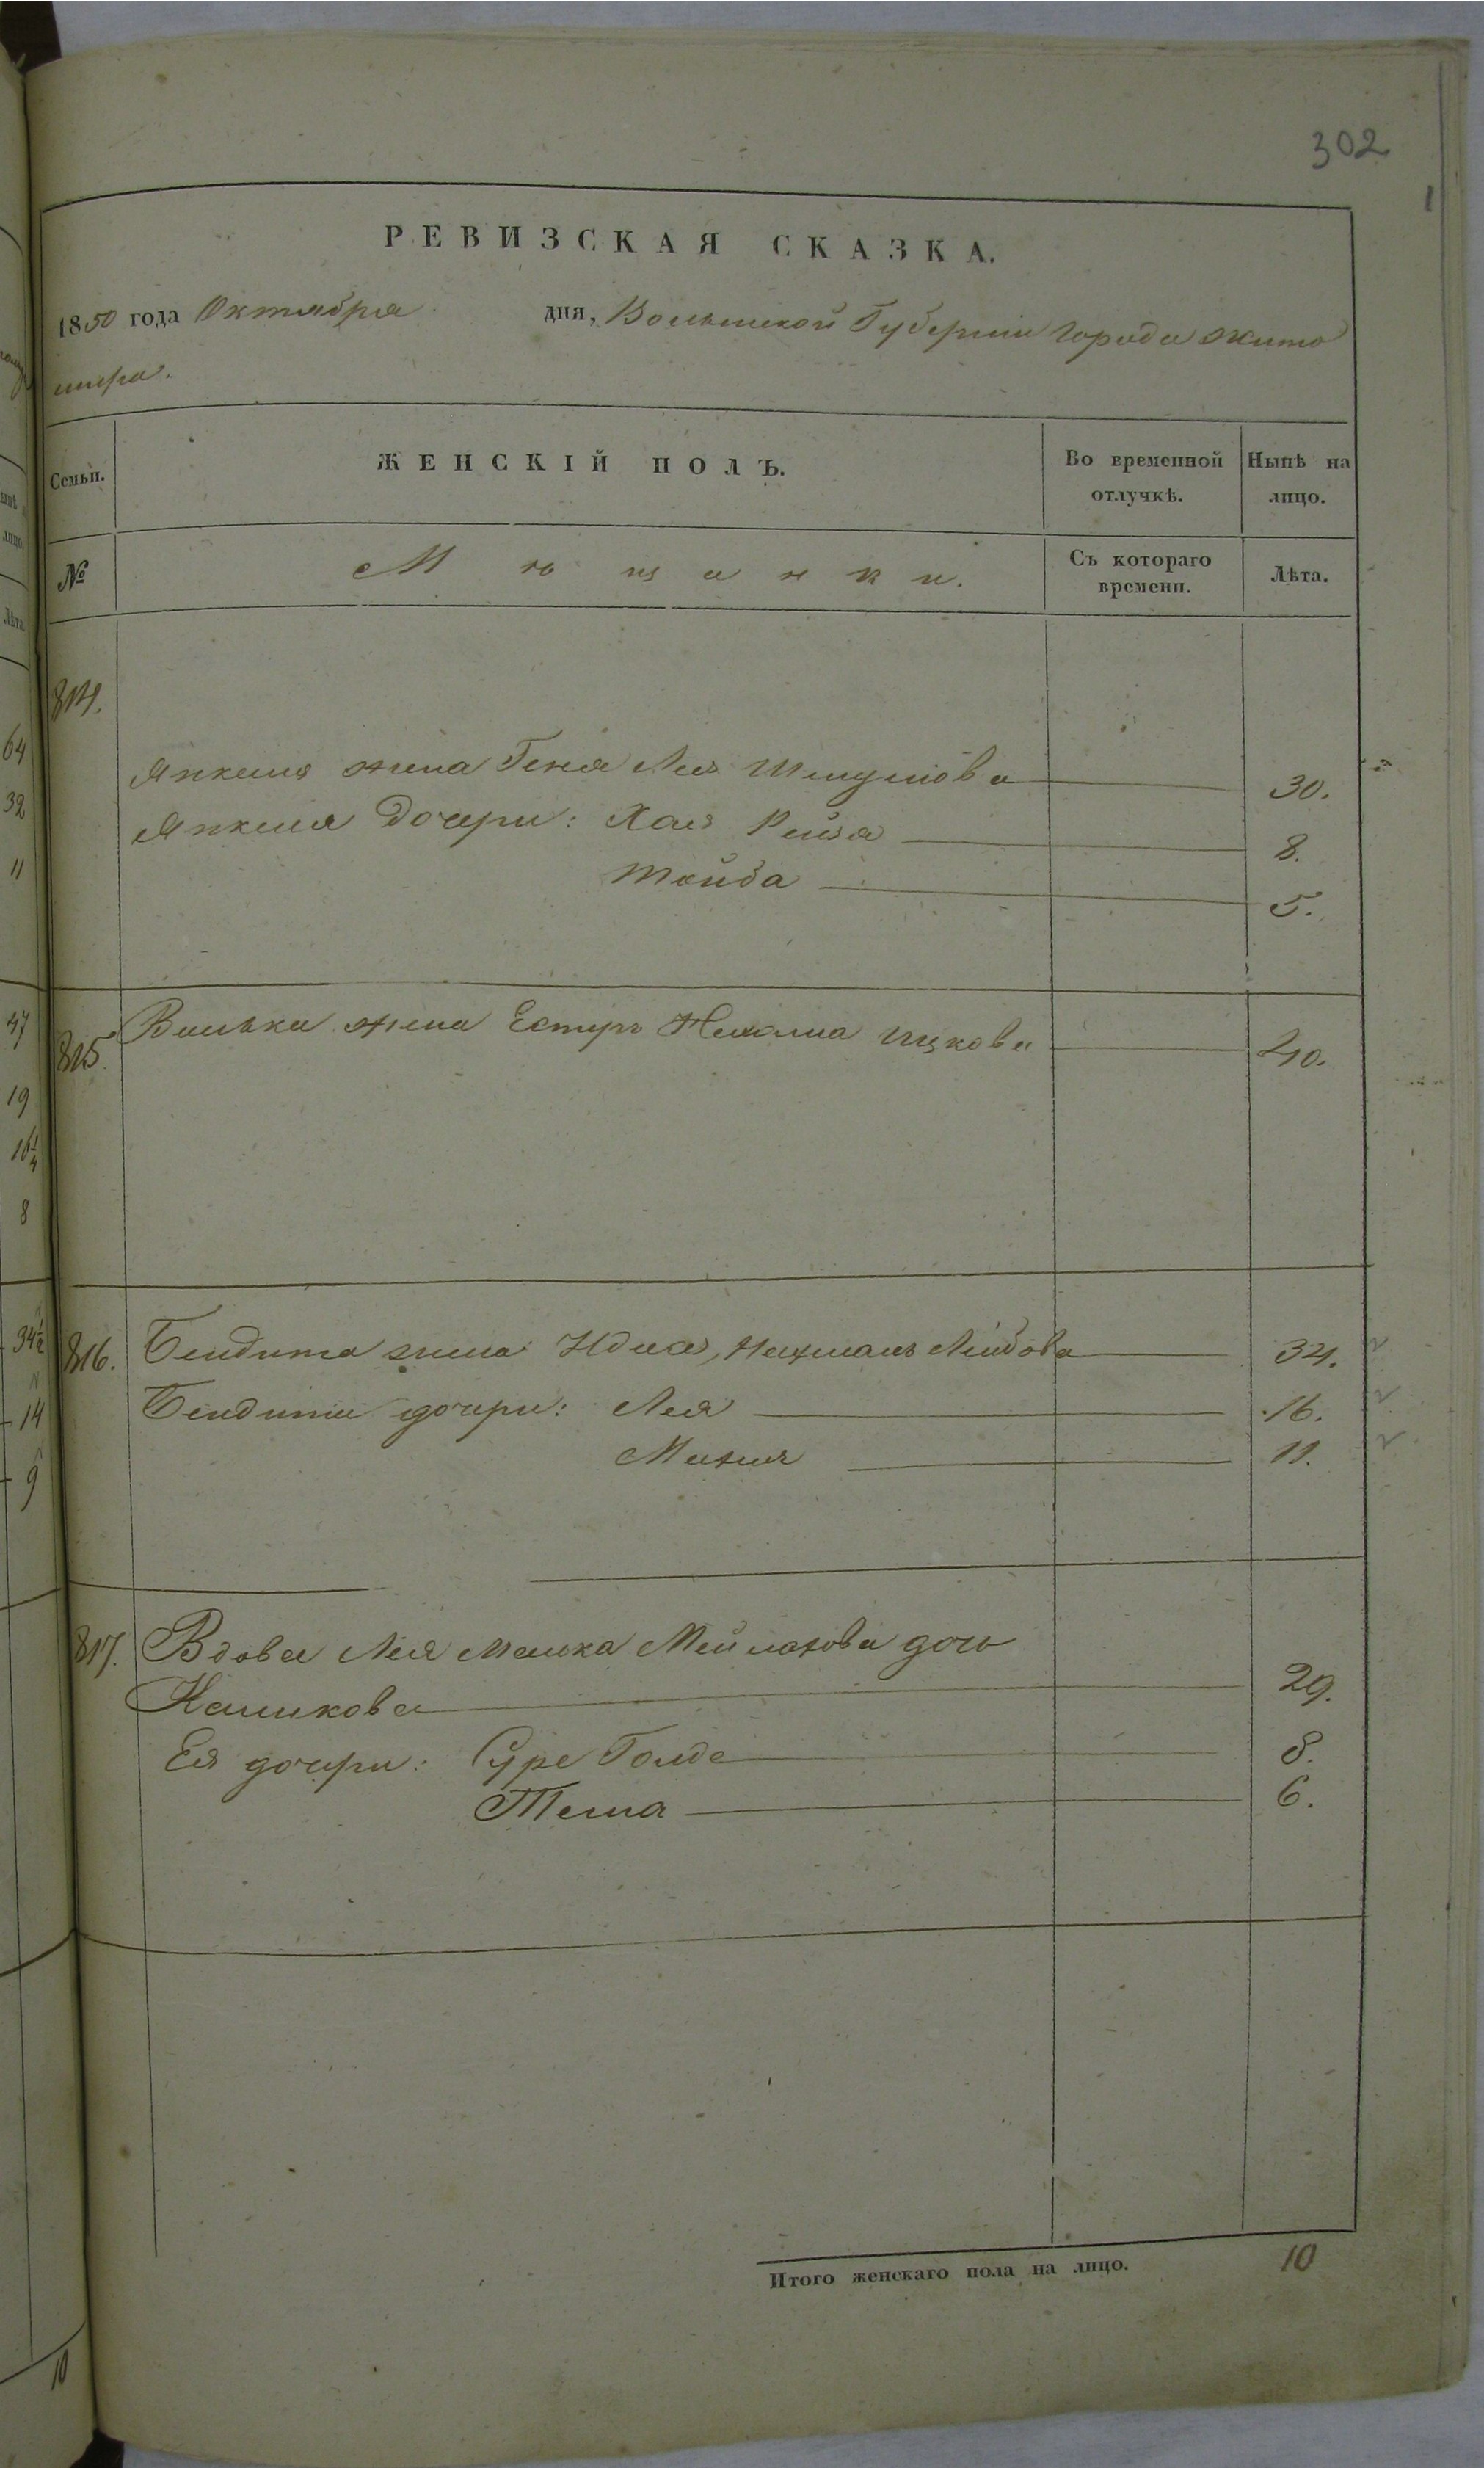 302
РЕВИЗСКАЯ СКАЗКА.
1850 года Октября дня, Волынской Губернии Города Жито
мира.
Семьи. ЖЕНСКІЙ ПОЛЪ. Во временной отлучкѣ. Нынѣ на лицо.
№ Мѣщанки. Съ котораго времени. Лѣта.
814.
Янкеля жена Геня Лея Шмулова 30.
Янкеля Дочери: Хая Рейза 8.
Тойба 5.
815 Волька жена Естеръ Нехама Ицкова 40.
816. Бендита жена Удля, Нахманъ Лейбова 34.
Бендита дочери: Лея 16.
11.
817. Вдова Лея Малка дочь
29.
Ея дочери: Суре Голде 8.
6.
Итого женскаго пола на лицо. 10
64
32
11
47
19
16 1/4
8
34 1/2
14
9
10